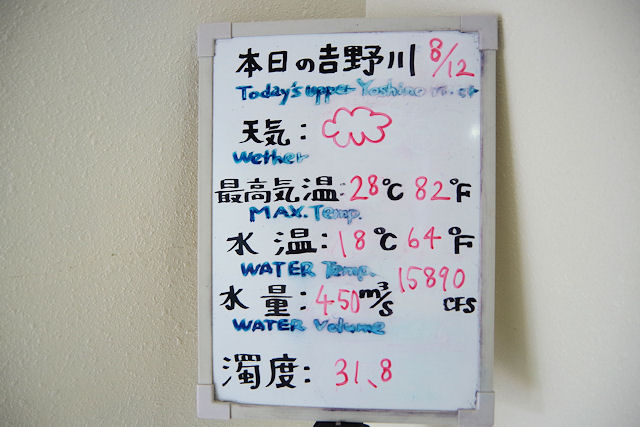 本日の吉野川 8/12
Today's upper Yoshino
天気:
Wether
最高気温:28℃ 82°F
MAX.Temp.
水温:18℃ 64°F
WATER Temp.
水量:450m³/s 15890 CFS
WATER Volume
濁度:31、8